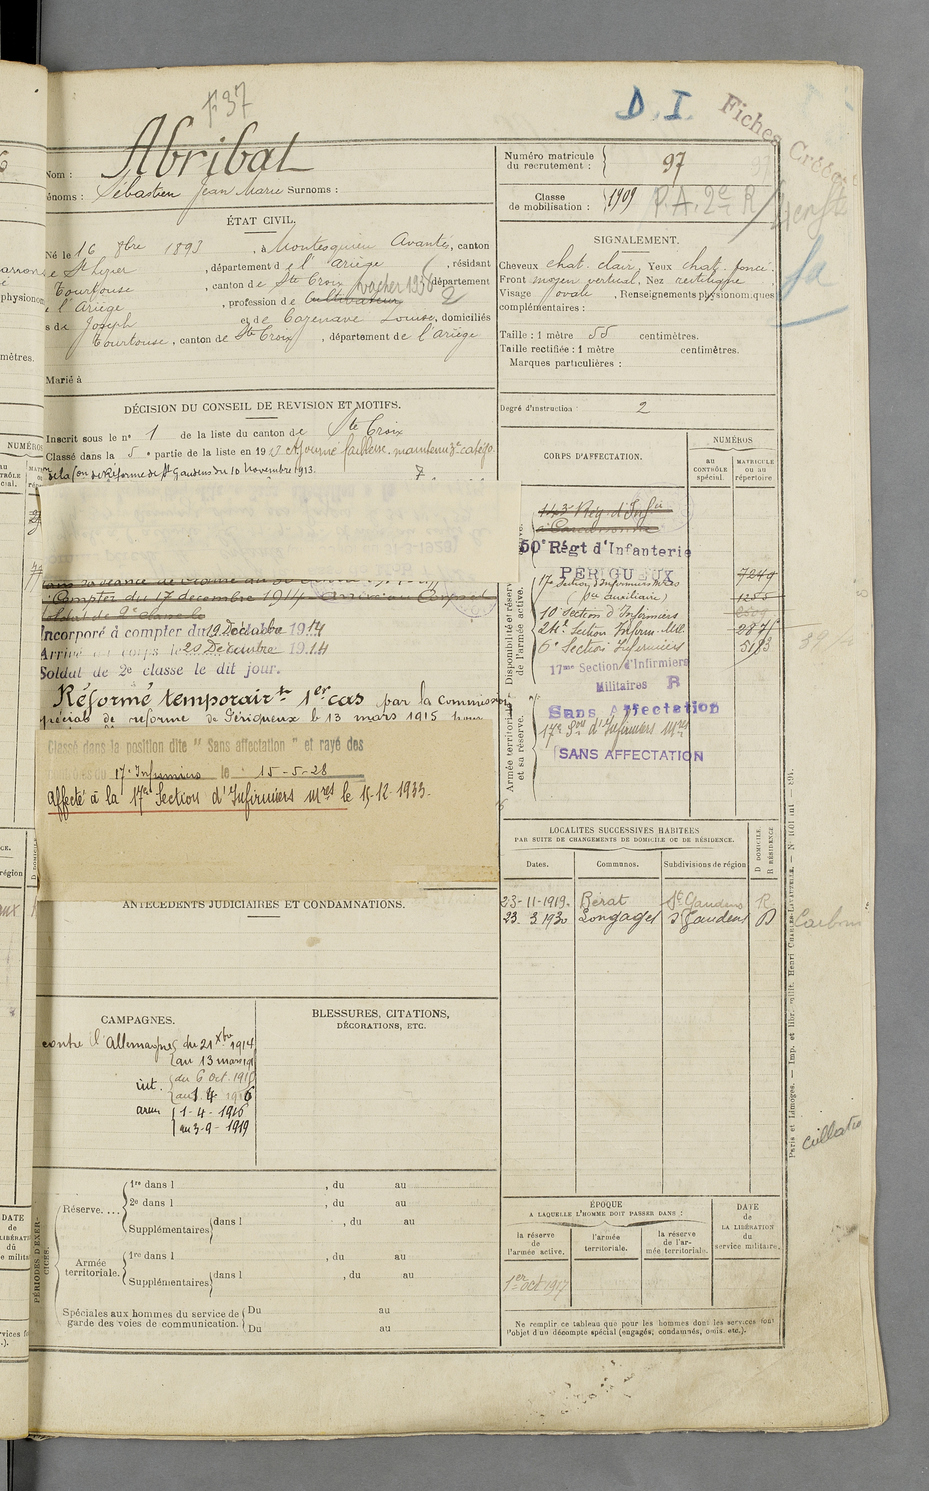 F 37
D. I.
Fiches
Nom : Abribat
Prénoms : Sébastien Jean Marie Surnoms :
Numéro matricule du recrutement : 97
Classe de mobilisation : 1909
P.A. 2e R
ÉTAT CIVIL.
Né le 16 8bre 1893, à Montesquieu Avantès, canton
de St Lizier, département de l'Ariège, résidant
Tourtouse, canton de Ste Croix, département
l'Ariège, profession de cultivateur vacher 1936
de Joseph et de Cazenave Louise, domiciliés
Tourtouse, canton de Ste Croix, département de l'Ariège
Marié à
SIGNALEMENT.
Cheveux chat. clair, Yeux chat. foncé.
Front moyen vertical, Nez rectiligne
Visage ovale, Renseignements physionomiques
complémentaires :
Taille : 1 mètre 55 centimètres.
Taille rectifiée : 1 mètre centimètres.
Marques particulières :
Degré d'instruction : 2
DÉCISION DU CONSEIL DE REVISION ET MOTIFS.
Inscrit sous le n° 1 de la liste du canton de Ste Croix
Classé dans la 5e partie de la liste en 19 Ajourné faiblesse. maintenu
de Réforme de St Gaudens du 10 Novembre 1913.
à Compter du 17 décembre 1914 Arrivé au Corps
soldat de 2e classe le
Incorporé à compter du 19 Décembre 1914
Arrivé au corps le 20 Décembre 1914
Soldat de 2e classe le dit jour.
Réformé temporairt 1er cas par la Commission
spéciale de réforme de Périgueux le 13 mars 1915 pour
Classé dans la position dite " Sans affectation " et rayé des
17e Infirmiers le : 15-5-28
Affecté à la 17e Section d'Infirmiers Mres le 15-12-1933.
CORPS D'AFFECTATION.
NUMÉROS
au CONTRÔLE spécial.
MATRICULE ou au répertoire
Disponibilité et réserve de l'armée active.
143e Rég. d'Infie
à Carcassonne
50e Régt d'Infanterie
PERIGUEUX
7249
17e Section d'Infirmiers Mres
(Sce auxiliaire)
1255
10e Section d'Infirmiers
24e Section Infirm. Mil.
2875
6e Section Infirmiers
5173
17me Section d'Infirmiers
Militaires R
Armée territoriale et sa réserve.
Sans Affectation
17e Son d'Infirmiers Mres
SANS AFFECTATION
LOCALITÉS SUCCESSIVES HABITÉES
PAR SUITE DE CHANGEMENTS DE DOMICILE OU DE RÉSIDENCE.
Dates. Communes. Subdivisions de région D DOMICILE. R RÉSIDENCE
23-11-1919. Bérat St Gaudens R
23.3.1930 Longages St Gaudens D
ANTÉCÉDENTS JUDICIAIRES ET CONDAMNATIONS.
CAMPAGNES.
contre l'Allemagne du 21 Xbre 1914
au 13 mars
int. du 6 Oct. 1915
au 1 4 1916
arm 1-4-1916
au 3-9-1919
BLESSURES, CITATIONS,
DÉCORATIONS, ETC.
PÉRIODES D'EXERCICES.
Réserve....
1re dans l , du au
2e dans l , du au
Supplémentaires dans l , du au
Armée territoriale.
1re dans l , du au
Supplémentaires dans l , du au
Spéciales aux hommes du service de Du au
garde des voies de communication. Du au
ÉPOQUE
A LAQUELLE L'HOMME DOIT PASSER DANS :
la réserve de l'armée active.
l'armée territoriale.
la réserve de l'armée territoriale.
DATE de LA LIBÉRATION du service militaire.
1er oct 1917
Ne remplir ce tableau que pour les hommes dont les services font
l'objet d'un décompte spécial (engagés, condamnés, omis. etc.).
Paris et Limoges. — Imp. et libr. milit. Henri CHARLES-LAVAUZELLE.